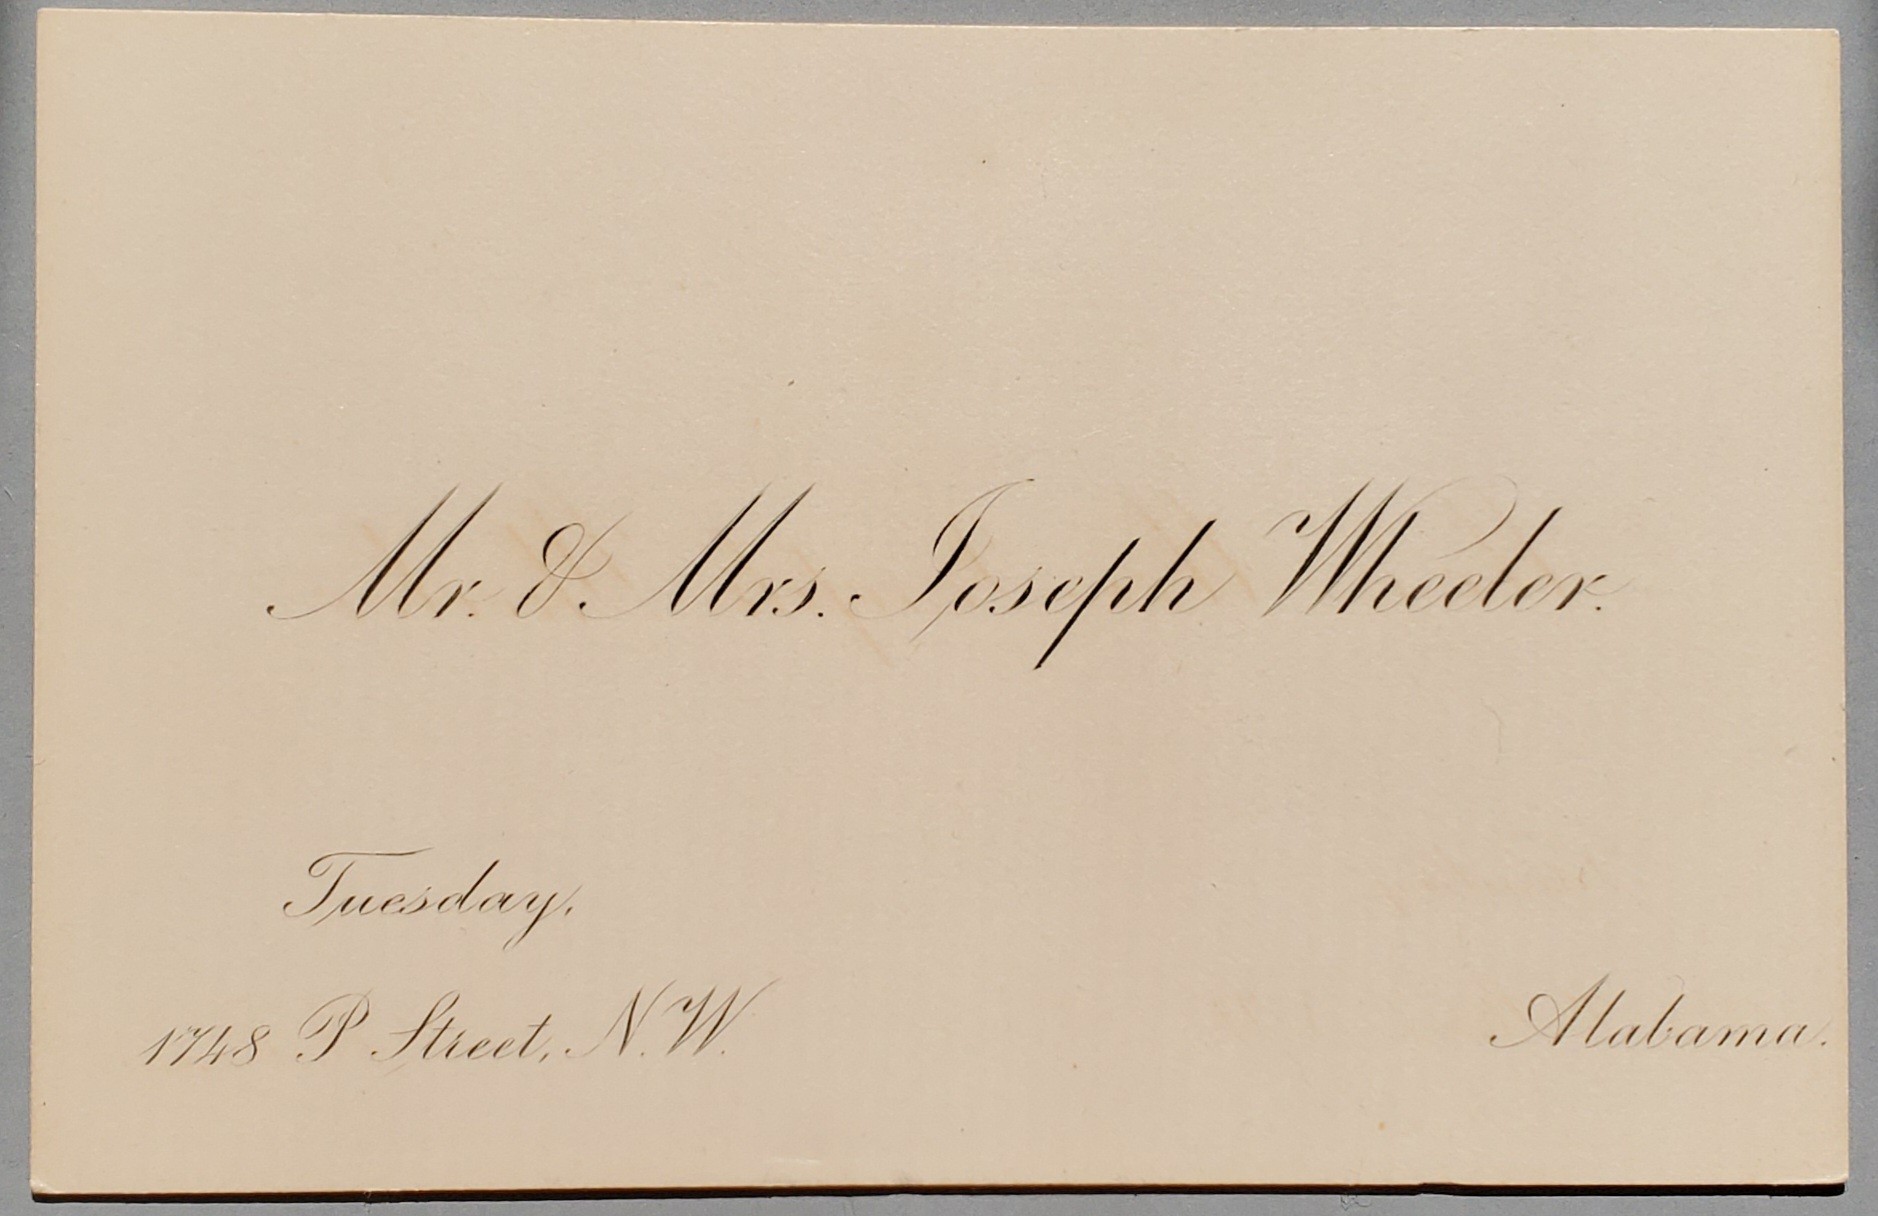 Mr. & Mrs. Joseph Wheeler.
Tuesday.
1748 P Street, N.W.
Alabama.